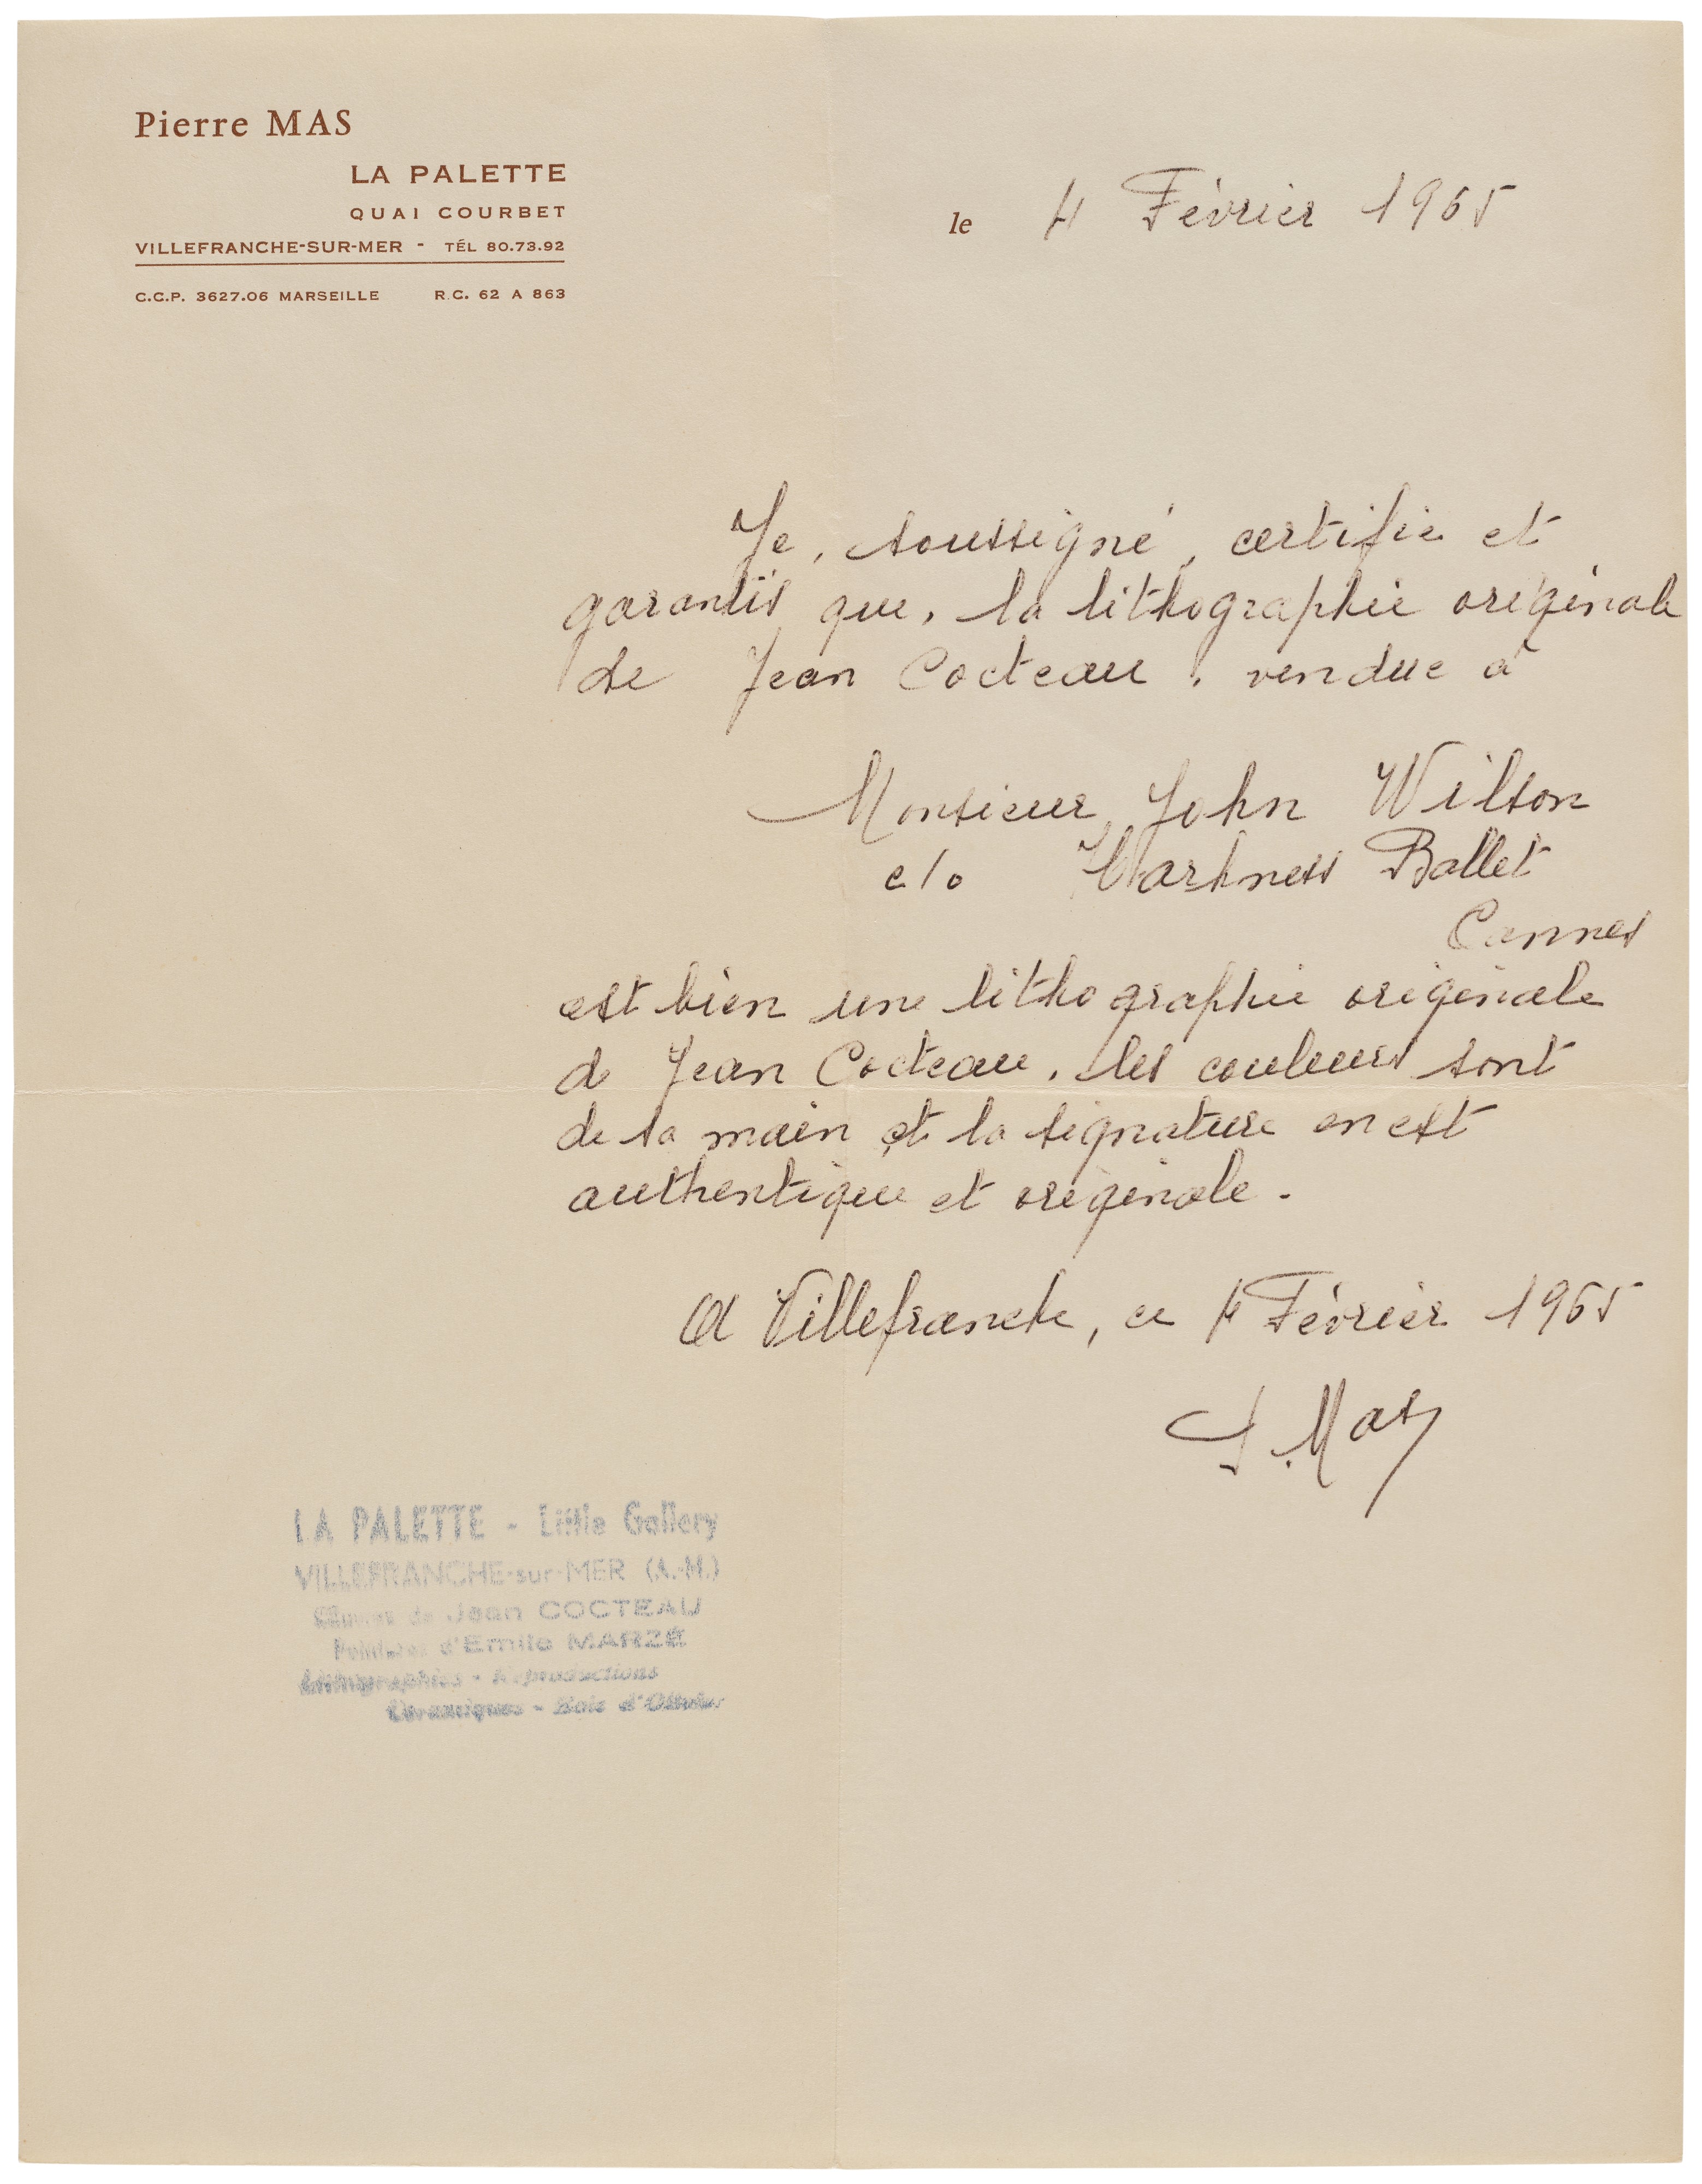 Pierre MAS
LA PALETTE
QUAI COURBET
VILLEFRANCHE-SUR-MER - TÉL 80.73.92
C.C.P. 3627.06 MARSEILLE R.C. 62 A 863
le 4 Février 1965
Je, soussigné, certifie et
garantis que, la lithographie originale
de Jean Cocteau, vendue à
Monsieur John Wilson
c/o Harkness Ballet
Cannes
est bien une lithographie originale
de Jean Cocteau, les couleurs sont
de sa main et la signature en est
authentique et originale.
A Villefranche, ce 4 Février 1965
P. Mas
LA PALETTE - Little Gallery
VILLEFRANCHE-sur-MER (A.-M.)
de Jean COCTEAU
d'Emile MARZÉ
Lithographies - Reproductions
Céramiques - Bois d'Olivier